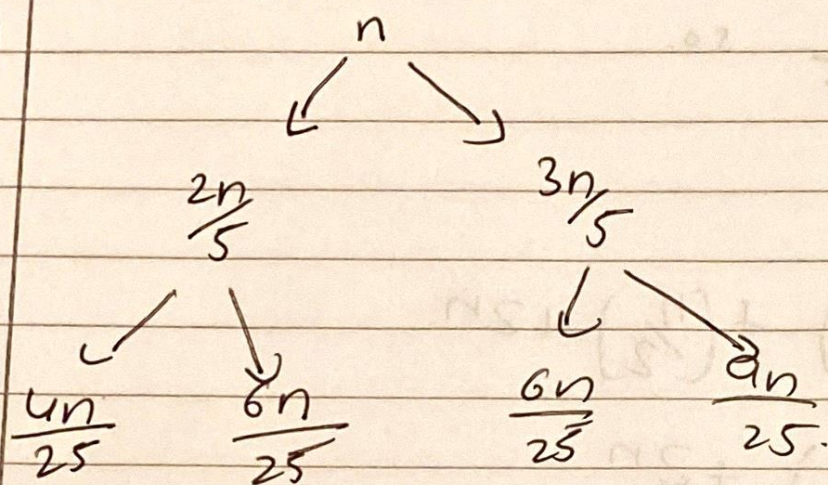 n
2n/5 3n/5
4n/25 6n/25 6n/25 9n/25.